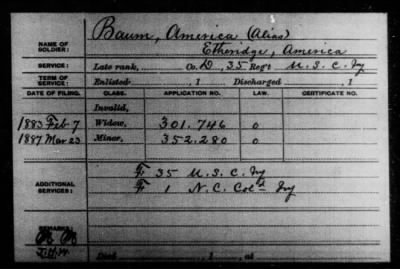 Baum, America (Alias)
NAME OF SOLDIER: Etheridge, America
SERVICE: Late rank, Co. D, 35 Reg't U.S.C. Iy
TERM OF SERVICE: Enlisted , 1 Discharged , 1
DATE OF FILING. CLASS. APPLICATION NO. LAW. CERTIFICATE NO.
Invalid,
1883 Feb 7 Widow, 301.746 o
1887 Mar 23 Minor, 352.280 o
F 35 U.S.C. Iy
ADDITIONAL SERVICES: F 1 N.C. Col'd Iy
REMARKS:
Died , 1 , at